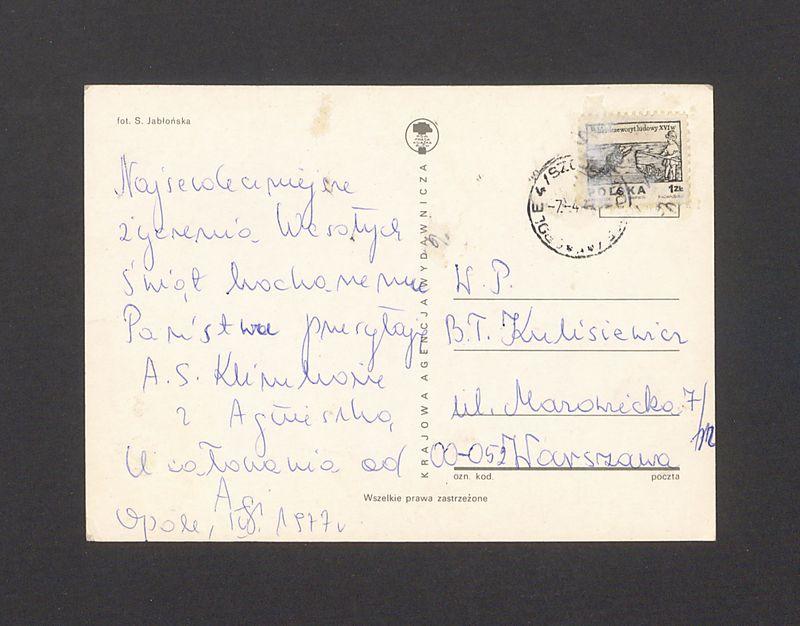 fot. S. Jabłońska
Najserdeczniejsze
życzenia Wesołych
Świąt kochanemu
Państwu przesyłają
A. S. Klimkowie
z Agnieszką
Ucałowania od
Agi
Opole, 1977 r
KRAJOWA AGENCJA WYDAWNICZA
drzeworyt ludowy XVI w
POLSKA
1 ZŁ
OPOLE
W. P.
B.T. Kulisiewicz
ul. Mazowiecka 7/
00-052 Warszawa
ozn. kod. poczta
Wszelkie prawa zastrzeżone